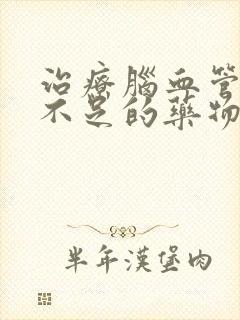 治療腦血管
不足的藥物
半年漢堡肉